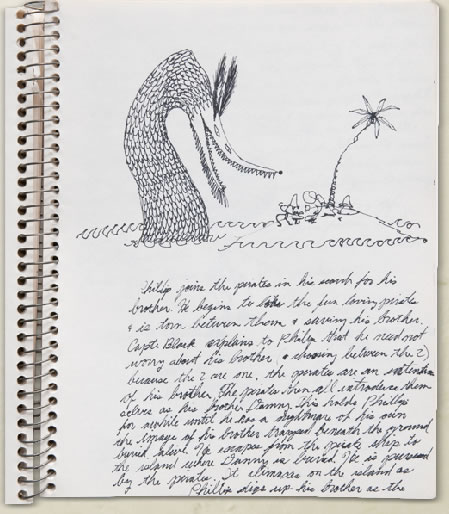 Phillip joins the pirates in his search for his
brother. He begins to the fun loving pirate
& is torn between them & saving his brother.
Capt. Black explains to Philip that he need not
worry about his brother, choosing between the 2)
because the 2 are one. the pirates are an extention
of his brother. The pirates then all introduce them
selves as his brother Danny. This holds Phillip
for awhile until he has a nightmare of his own
the image of his brother trapped beneath the ground
buried alive. He escapes from the pirate ship to
the island where Danny is buried. He is pursued
by the pirates. It climaxes on the island as
Phillip digs up his brother as the